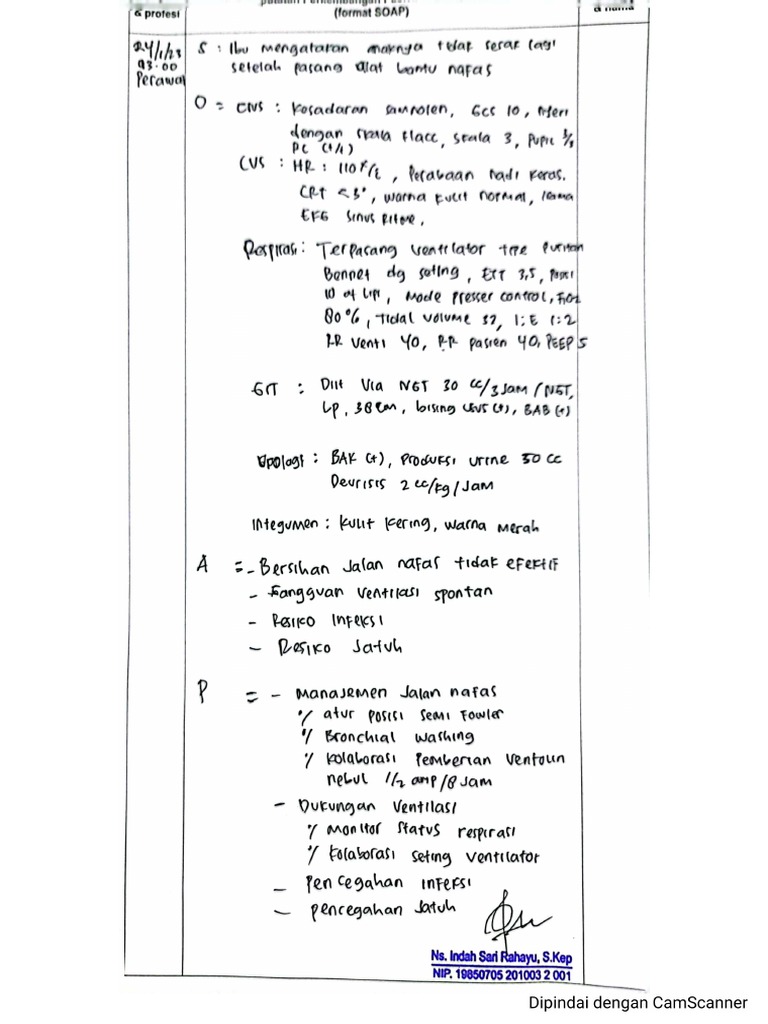 & profesi
(format SOAP)
24/1/23
03.00
Perawat
S : Ibu mengatakan anaknya tidak sesak lagi
setelah pasang alat bantu nafas
O = CNS : Kesadaran samnolen, GCS 10,
dengan skala flacc, skala 3, Pupil 3/3
PC (+/+)
CVS : HR : 110 x/c, Perabaan nadi keras.
CRT <3", warna kulit normal, irama
EKG sinus ritme.
Respirasi : Terpasang ventilator tipe Puritan
Bennet dg seting, ETT 3,5,
10 cm Lipi, Mode Presser control, FiO2
80%, Tidal volume 37, I:E 1:2
RR venti 40, RR pasien 40, PEEP 5
GIT : Diit Via NGT 30 cc/3 Jam / NGT,
Lp, 38 cm, bising usus (+), BAB (+)
Upologi : BAK (+), Produksi urine 50 cc
Deurisis 2 cc/kg/Jam
Integumen : kulit kering, warna Merah
A = - Bersihan Jalan nafas tidak efektif
- Gangguan ventilasi spontan
- Resiko Infeksi
- Resiko Jatuh
P = - Manajemen Jalan nafas
% atur posisi semi Fowler
% Bronchial washing
% Kolaborasi Pemberian Ventolin
nebul 1/2 amp/8 Jam
- Dukungan Ventilasi
% Monitor status respirasi
% Kolaborasi seting ventilator
- Pencegahan infeksi
- pencegahan Jatuh
Ns. Indah Sari Rahayu, S.Kep
NIP. 19850705 201003 2 001
Dipindai dengan CamScanner